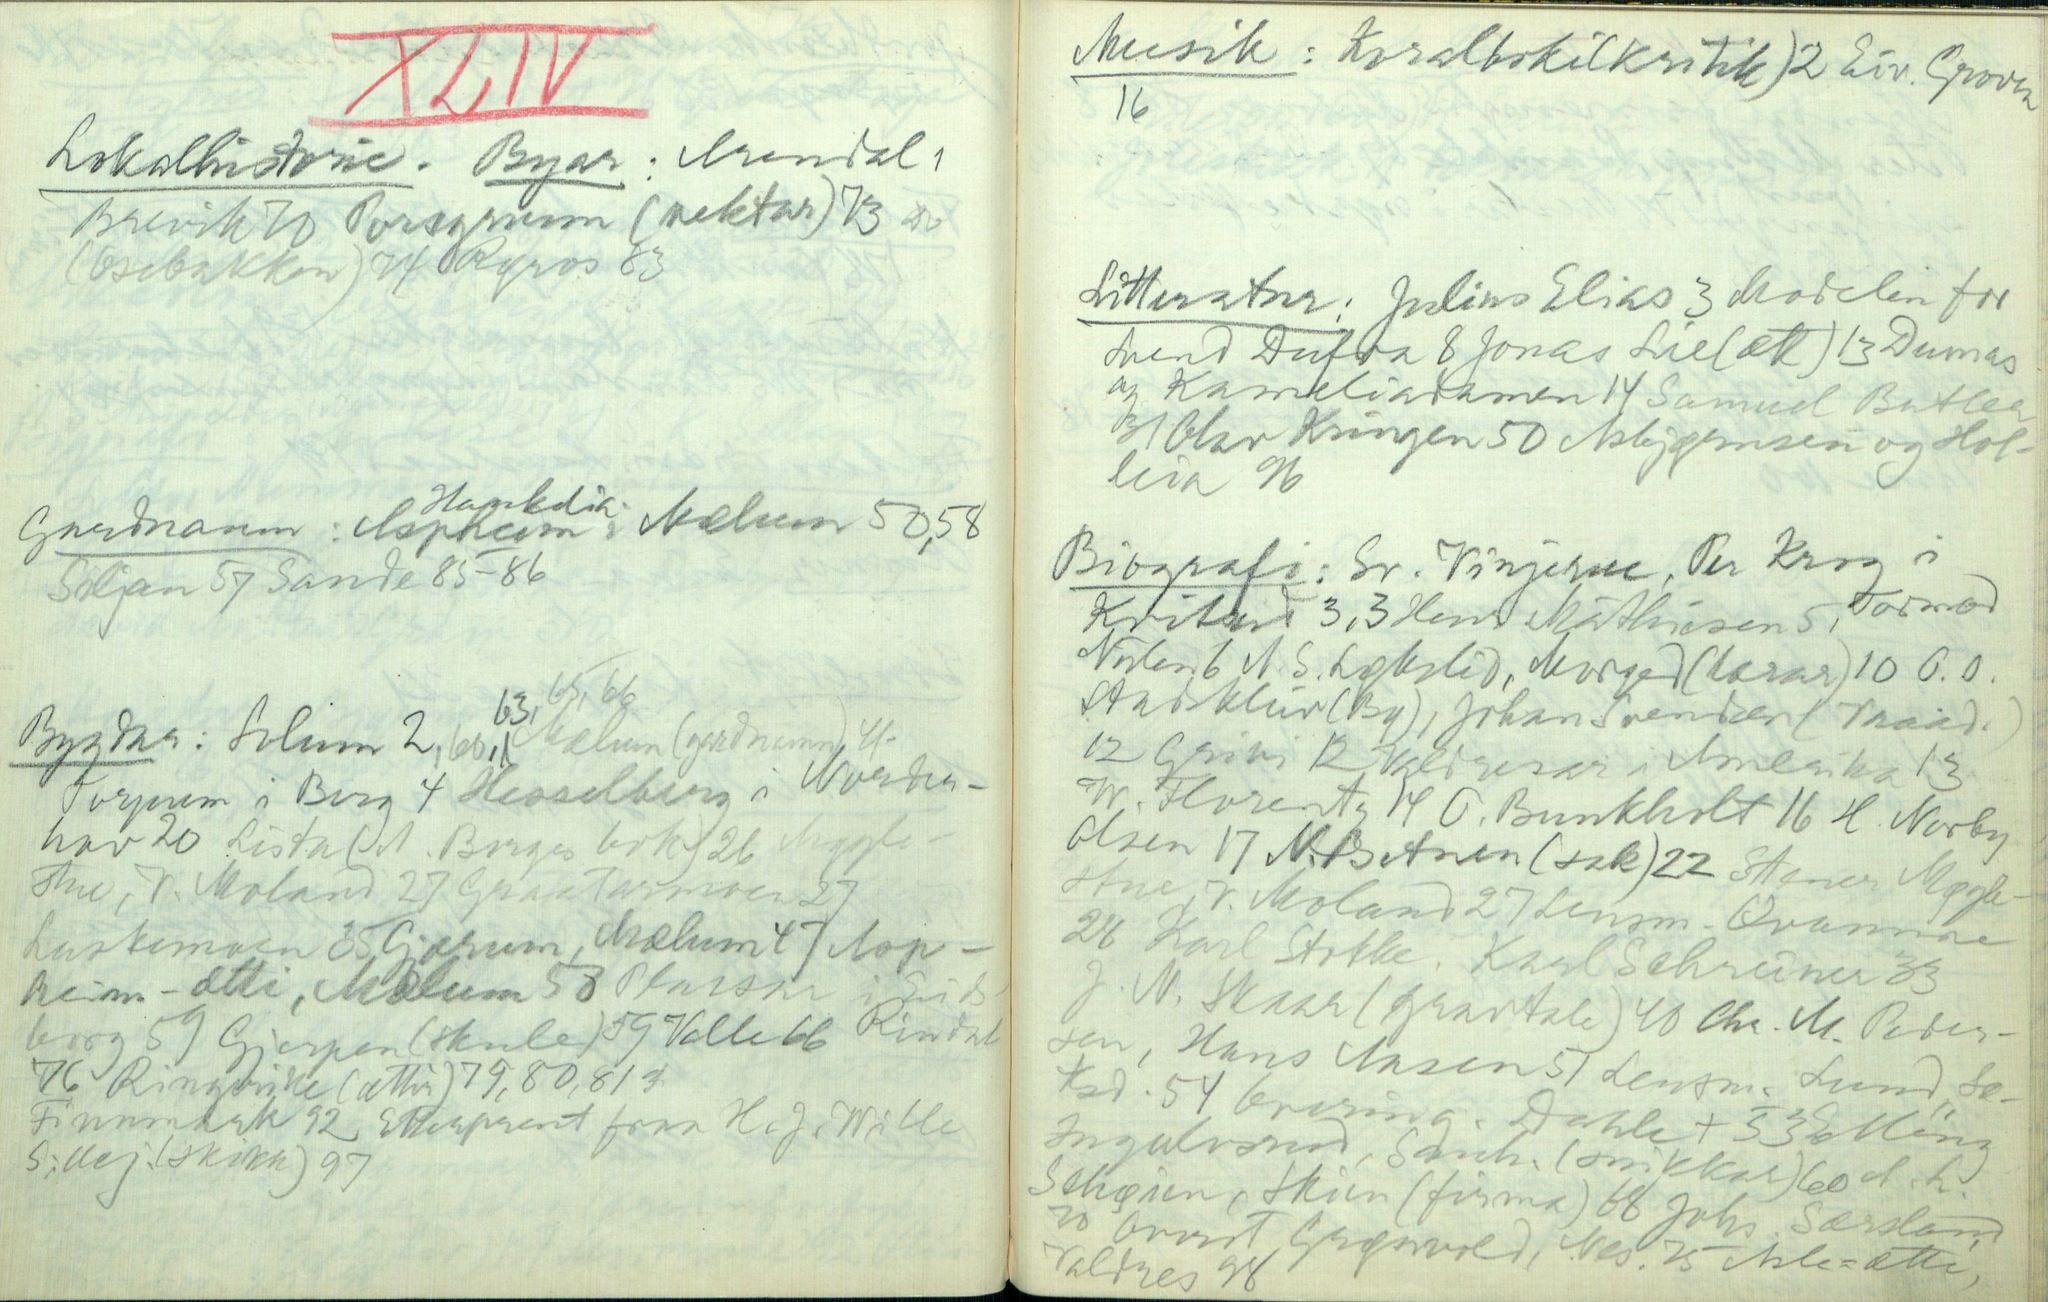 XLIV
Lokalhistorie. Byar: Arendal 1
Brevik 70 Porsgrunn (nektar) 73 do
(Osebakken) 74 Røyros 83
Gardnamn: Aspheim i Mælum 50,58
Siljan 57 Sande 85-86
63, 65, 66
Bygdar: Solum 2, 60, Mælum (gardnamn) 41.
Torpum i Berg 4 Hesselberg i Norder-
hov 20 Lista (A. Borges bok) 26 Mygle-
stue, V. Moland 27 Graatarmoen 27
Luksemoen 35 Gjerum, Mælum 47 Asp-
heim-ætti, Mælum 58 Plassar i Eids-
borg 59 Gjerpen (skule) 59 Valle 66 Rindal
76 Ringerike (ættir) 79, 80, 81
Finnmark 92 Etterprent fraa H. J. Wille
Sillej. (skikk) 97
Musik: Koralbok (kritik) 2 Eiv. Groven
16
Litteratur: Julius Elias 3 Modellen for
Svend Dufva 8 Jonas Lie (ætt) 13 Dumas
og Kameliadamen 14 Samuel Butler
31 Olav Kringen 50 Asbjørnsen og Hol-
leia 96
Biografi: Sv. Vinjerue, Per Krog i
3,3 Henr Mathiesen 5, Tormod
6 N. S. Løkslid, Morgedal 10 O. O.
Stadskleiv (By), Johan Svendsen
12 Grini 12 Valdresar i Amerika 13
W. Florentz 14 O. Bunkholt 16 H. Norby
Olsen 17 N. (sak) 22 Stener Mygle-
stue, V. Moland 27 Lensm. Kvamme
28 Karl Stotke. Karl Schreiner 33
J. N. Skaar (gravtale) 40 Chr. M. Peder-
sen, Hans Aasen 51 Lensm. Lund, Sæ-
tsd. 54 Dahle + 53 Elling
Ingulvsrud, Sandh. (snikkar) 60 d. h.
Schøien, Skien (firma) 68 Johs. Særsland
70 Grønvold, Nes. 75 Asle-ætti,
Valdres 98